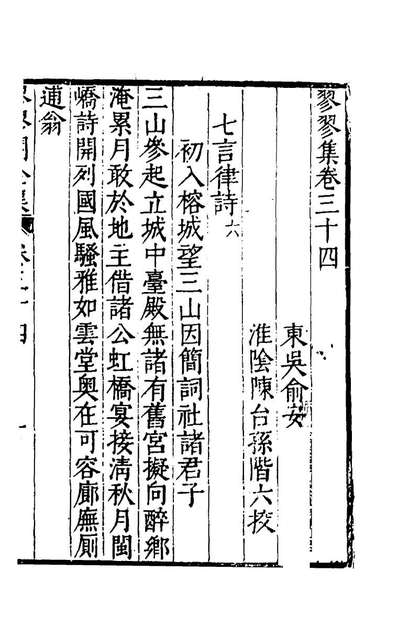 翏翏集卷三十四
東吳俞安
淮陰陳台孫階六挍
七言律詩六
初入榕城望三山因簡詞社諸君子
三山參起立城中臺殿無諸有舊宮擬向醉鄉
淹累月敢於地主借諸公虹橋宴接清秋月閩
嶠詩開列國風騷雅如雲堂奧在可容廊廡厠
逋翁